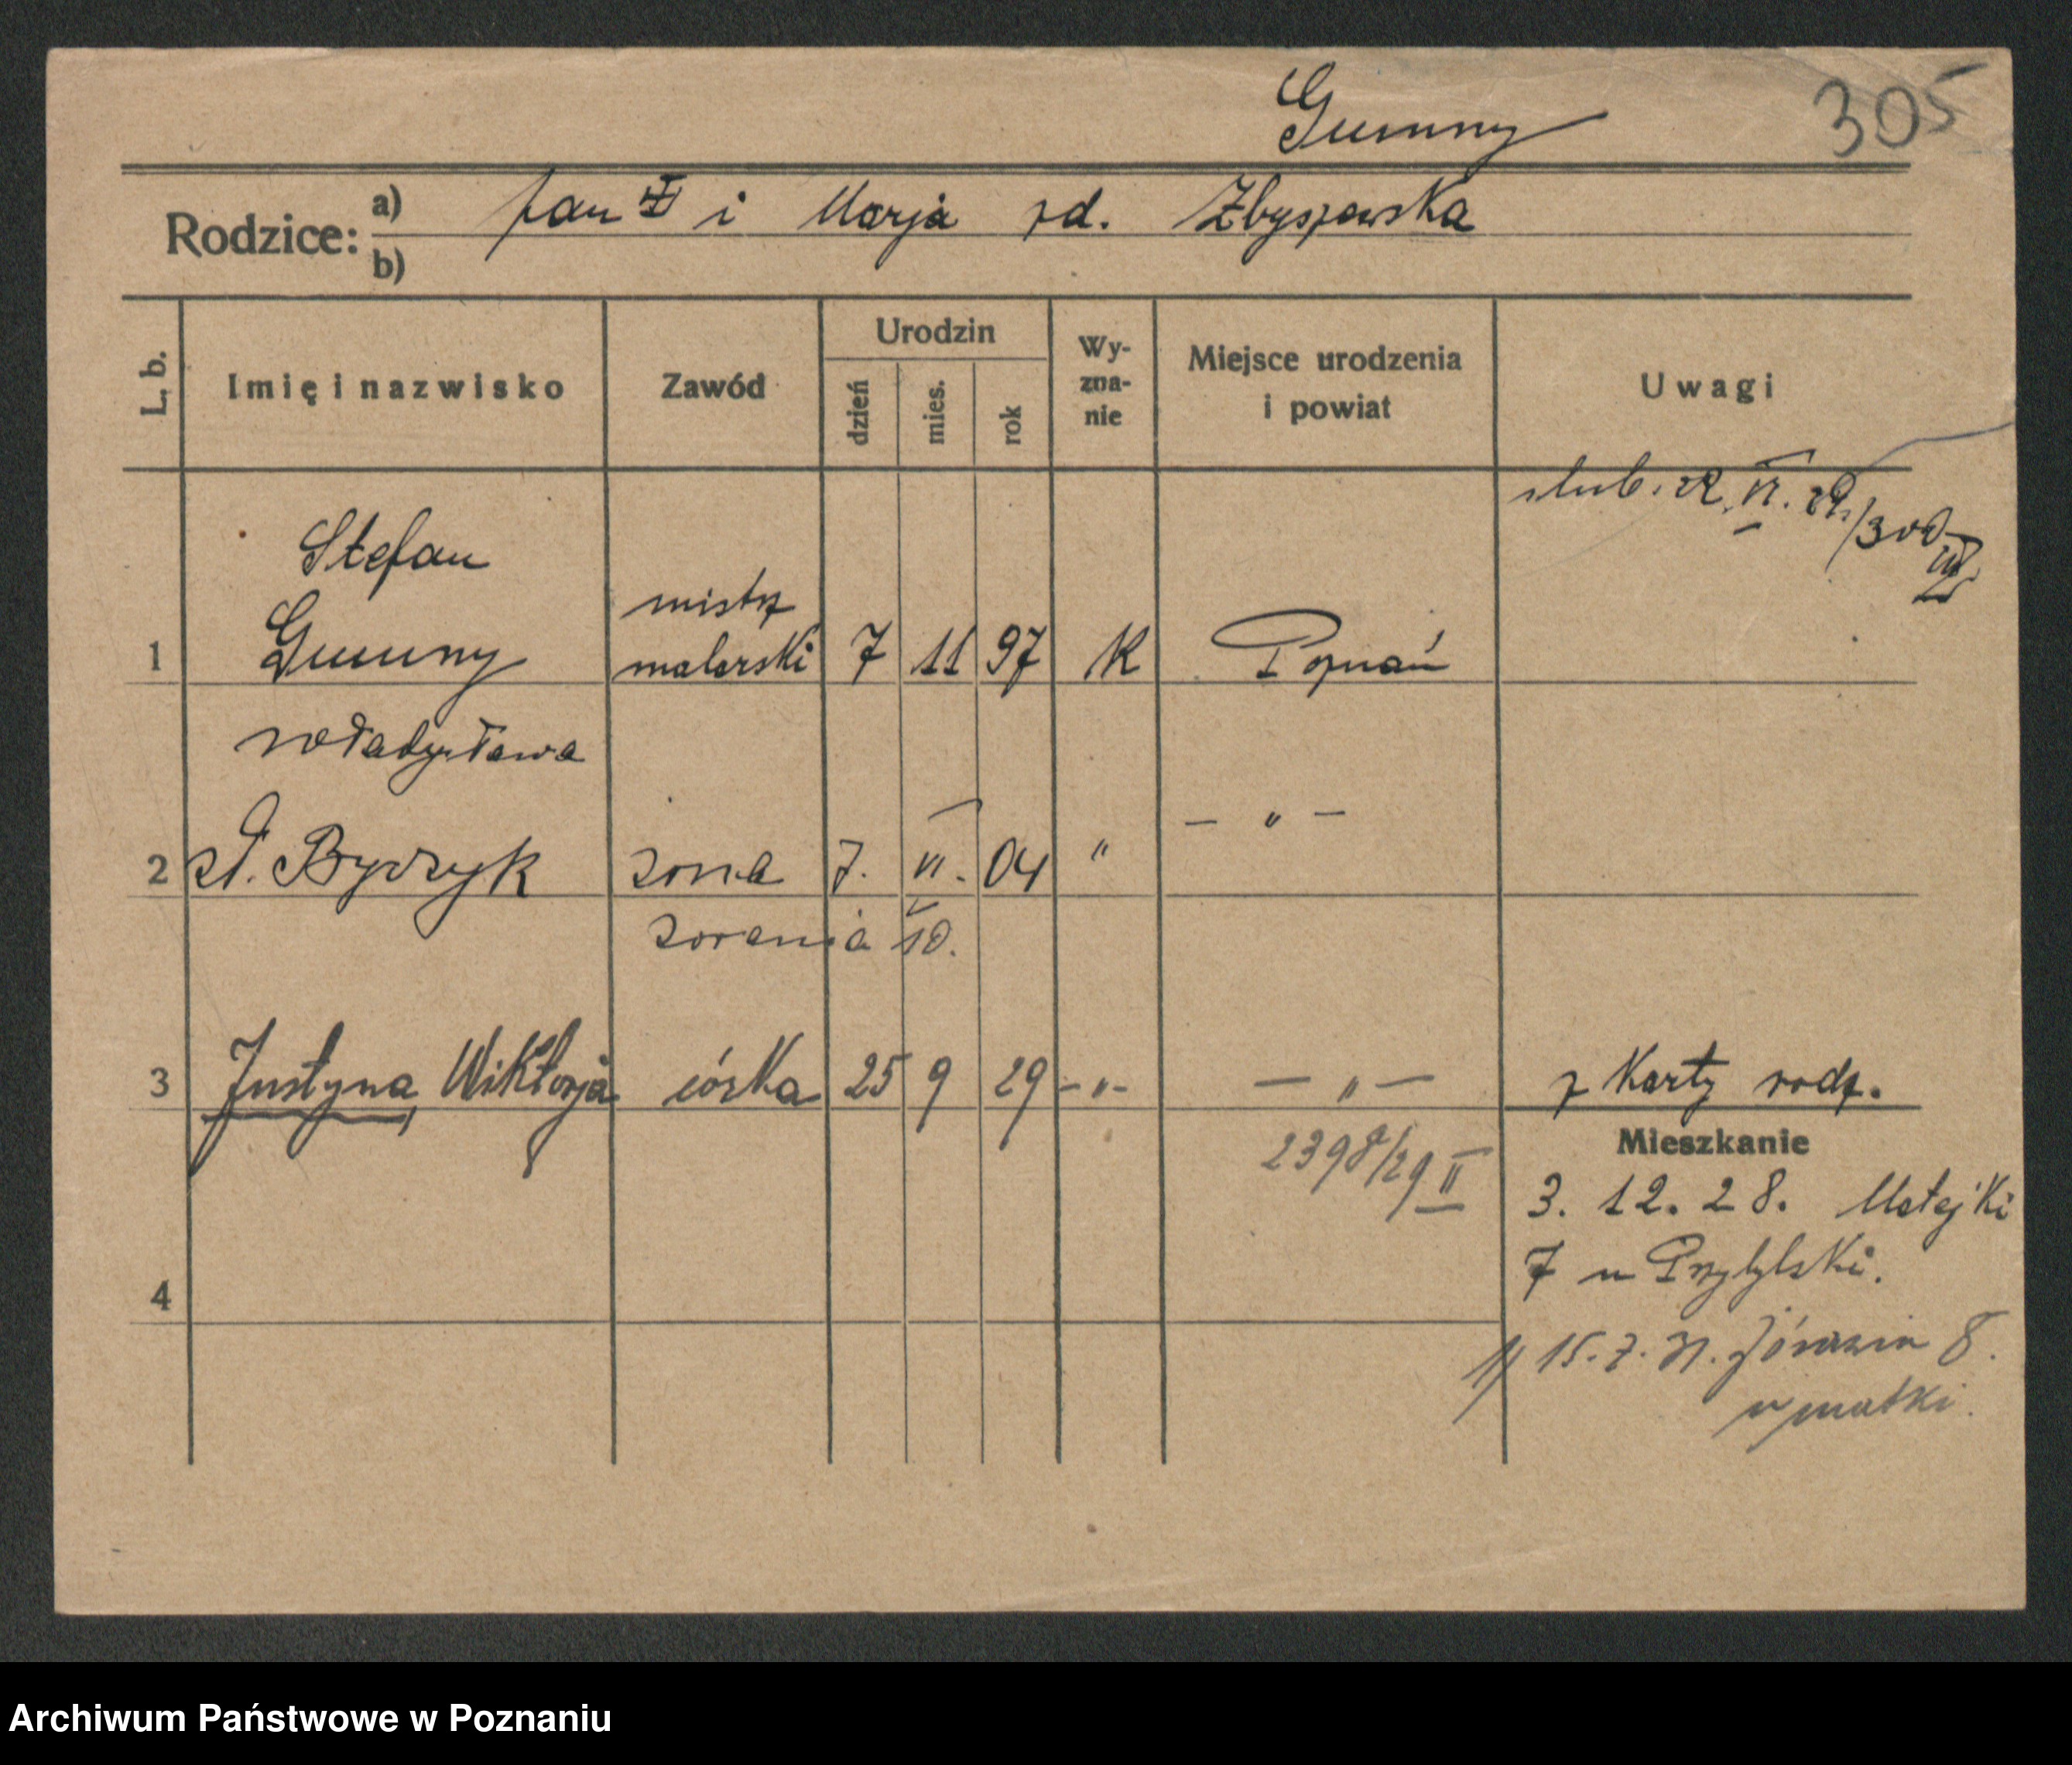 Gumny
305
Rodzice: a) Jan i Marja zd. Zbyszewska
b)
L. b.
Imię i nazwisko
Zawód
Urodzin
dzień
mies.
rok
Wy-
zna-
nie
Miejsce urodzenia
i powiat
Uwagi
ślub. 22. VI. 29.
Stefan
mistrz
1 Gumny malarski 7 11 97 K Poznań
Władysława
— „ —
2 Byczyk żona 7. VI. 04 "
3 Justyna, Wiktorja córka 25 9 29 - „ - — „ — z Karty rodz.
2398/29 II
Mieszkanie
3. 12. 28. Matejki
7 u Przybylski.
4
1/ 15. 7. 31. 8.
u matki.
Archiwum Państwowe w Poznaniu